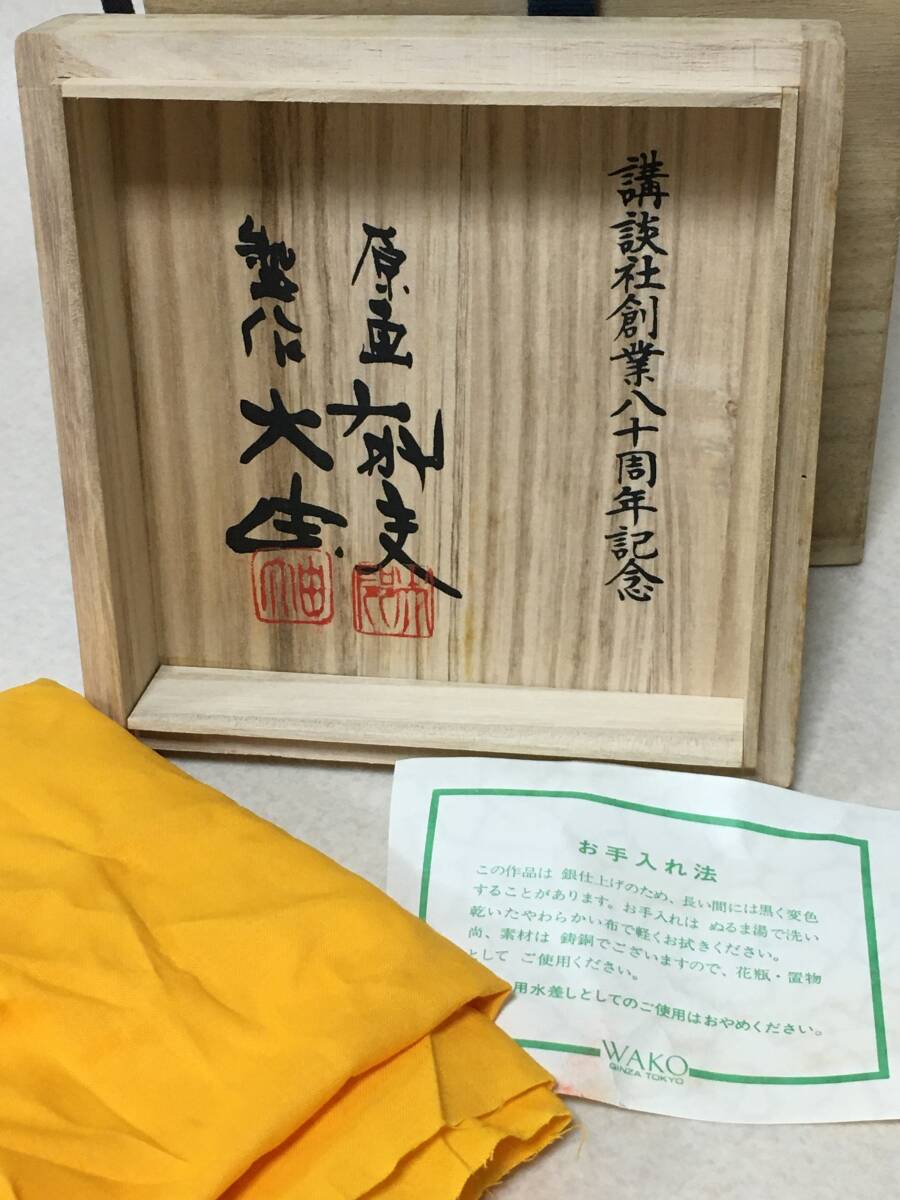 講談社創業八十周年記念
原画
製作 大
お手入れ法
この作品は 銀仕上げのため、長い間には黒く変色
することがあります。お手入れは ぬるま湯で洗い
乾いたやわらかい布で軽くお拭きください。
尚、素材は 鋳銅でございますので、花瓶・置物
として ご使用ください。
用水差しとしてのご使用はおやめください。
WAKO
GINZA TOKYO